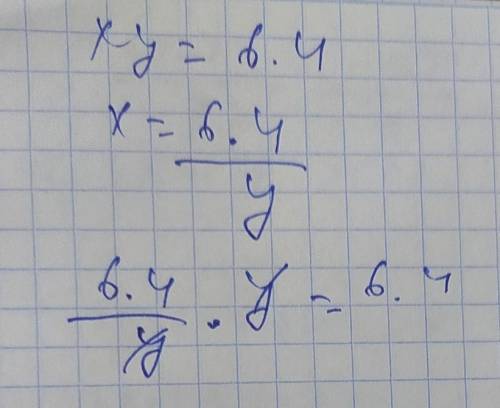 xy = 6.4
x = 6.4 / y
6.4 / y · y = 6.4